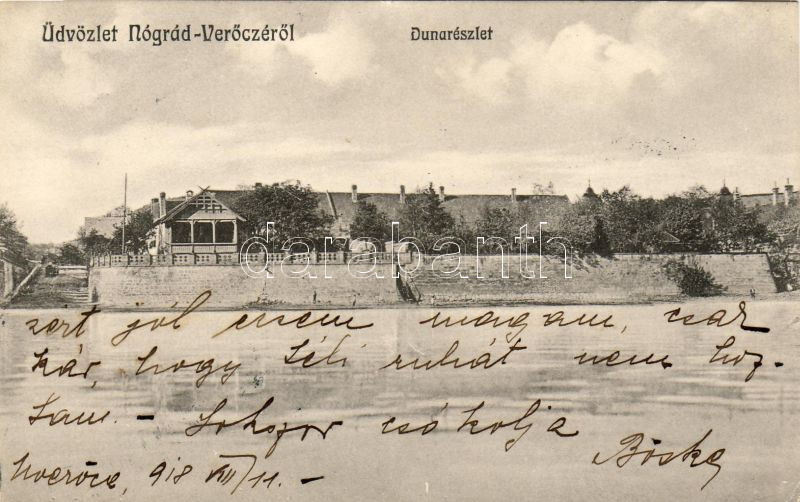 Üdvözlet Nógrád-Verőczéről
Dunarészlet
darabanth
zert jól érzem magam, csak
kár, hogy téli ruhát nem hoz-
tam. - Sokszor csókolja
Böske
Nverőce, 918 VIII/11. -